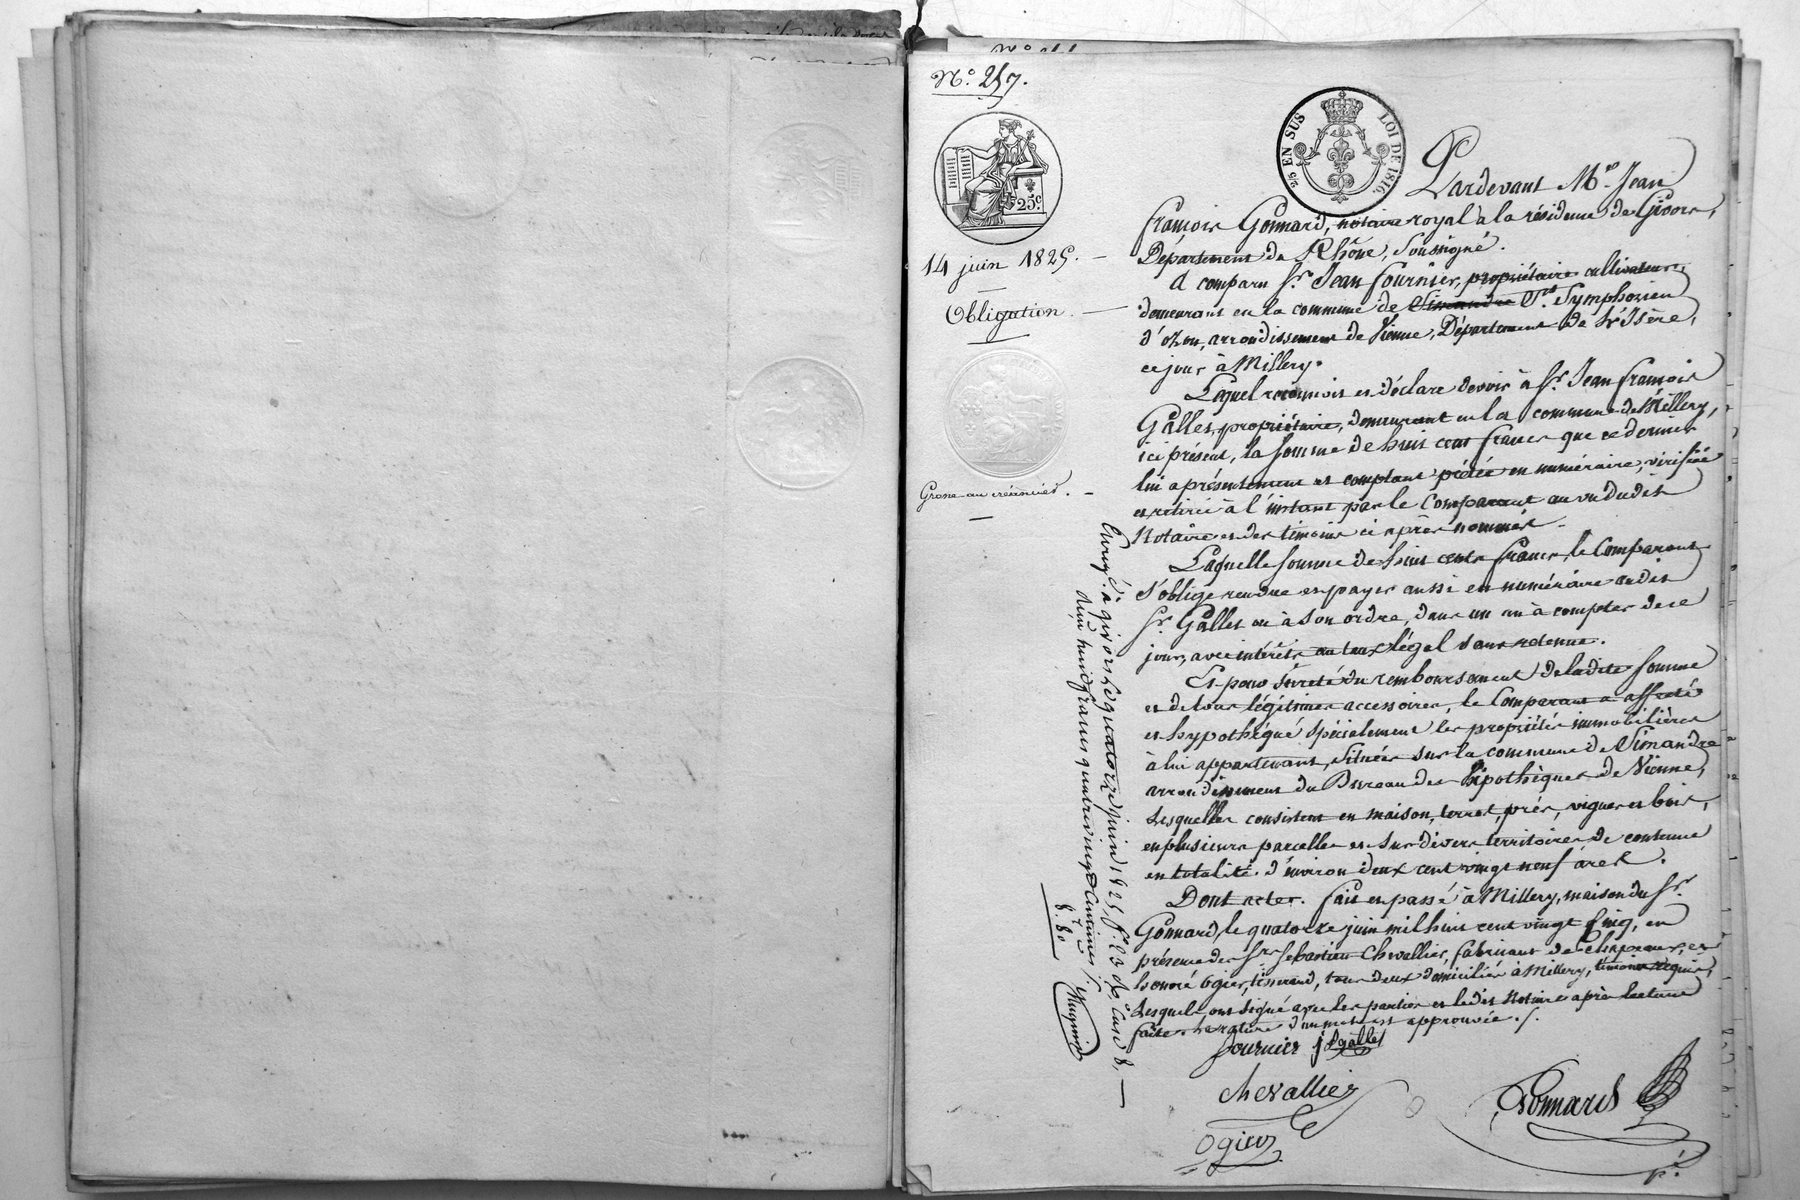 N.° 257.
25c.
2/5 EN SUS LOI DE 1816.
14 juin 1825.
Obligation.
Grosse au créancier.
Pardevant Me. Jean
françois Gonnard, notaire royal à la résidence de Givors,
Département du Rhône, soussigné.
A comparu Sr. Jean fournier, propriétaire cultivateur,
demeurant en la commune de Simandre St. Symphorien
d'ozon, arrondissement de Vienne, Département de l'Isère,
ce jour à Millery.
Lequel reconnoit et déclare devoir à Sr. Jean françois
Galles, propriétaire, demeurant en la commune de Millery,
ici présent, la somme de huit cent francs que ce dernier
lui a présentement et comptant prêtée en numéraire, vérifiée
et retirée à l'instant par le Comparant au vu dudit
Notaire et des témoins ci après nommés.
Laquelle somme de huit cents francs, le Comparant
s'oblige rendre et payer aussi en numéraire audit
Sr. Galles ou à son ordre, dans un an à compter de ce
jour, avec intérêts au taux légal sans retenue.
Et pour sûreté du remboursement de ladite somme
et de tous légitimes accessoires, le Comparant a affecté
et hypothéqué spécialement les propriétés immobilières
à lui appartenant, situées sur la commune de Simandre
arrondissement du Bureau des hipothèques de Vienne,
Lesquelles consistent en maison, terres, prés, vignes et bois,
en plusieurs parcelles et sur divers territoires de contenue
en totalité d'environ deux cent vingt neuf ares.
Dont acte. fait et passé à Millery, maison du Sr.
Gonnard, le quatorze juin mil huit cent vingt cinq, en
présence des Srs. Sebastien Chevallier, fabricant de chapeaux, et
honoré Ogier, tisserand, tous deux domiciliés à Millery, témoins requis,
Lesquels ont signé avec les parties et ledit Notaire après lecture
faite. La rature d'un mot est approuvée ./.
fournier j f galles
chevallier
Gonnard
Ogier
Enregé. à givors le quatorze juin 1825 fo. 123 Ro. Case 8.
reçu huit francs quatre vingt centimes ./.
8. 80